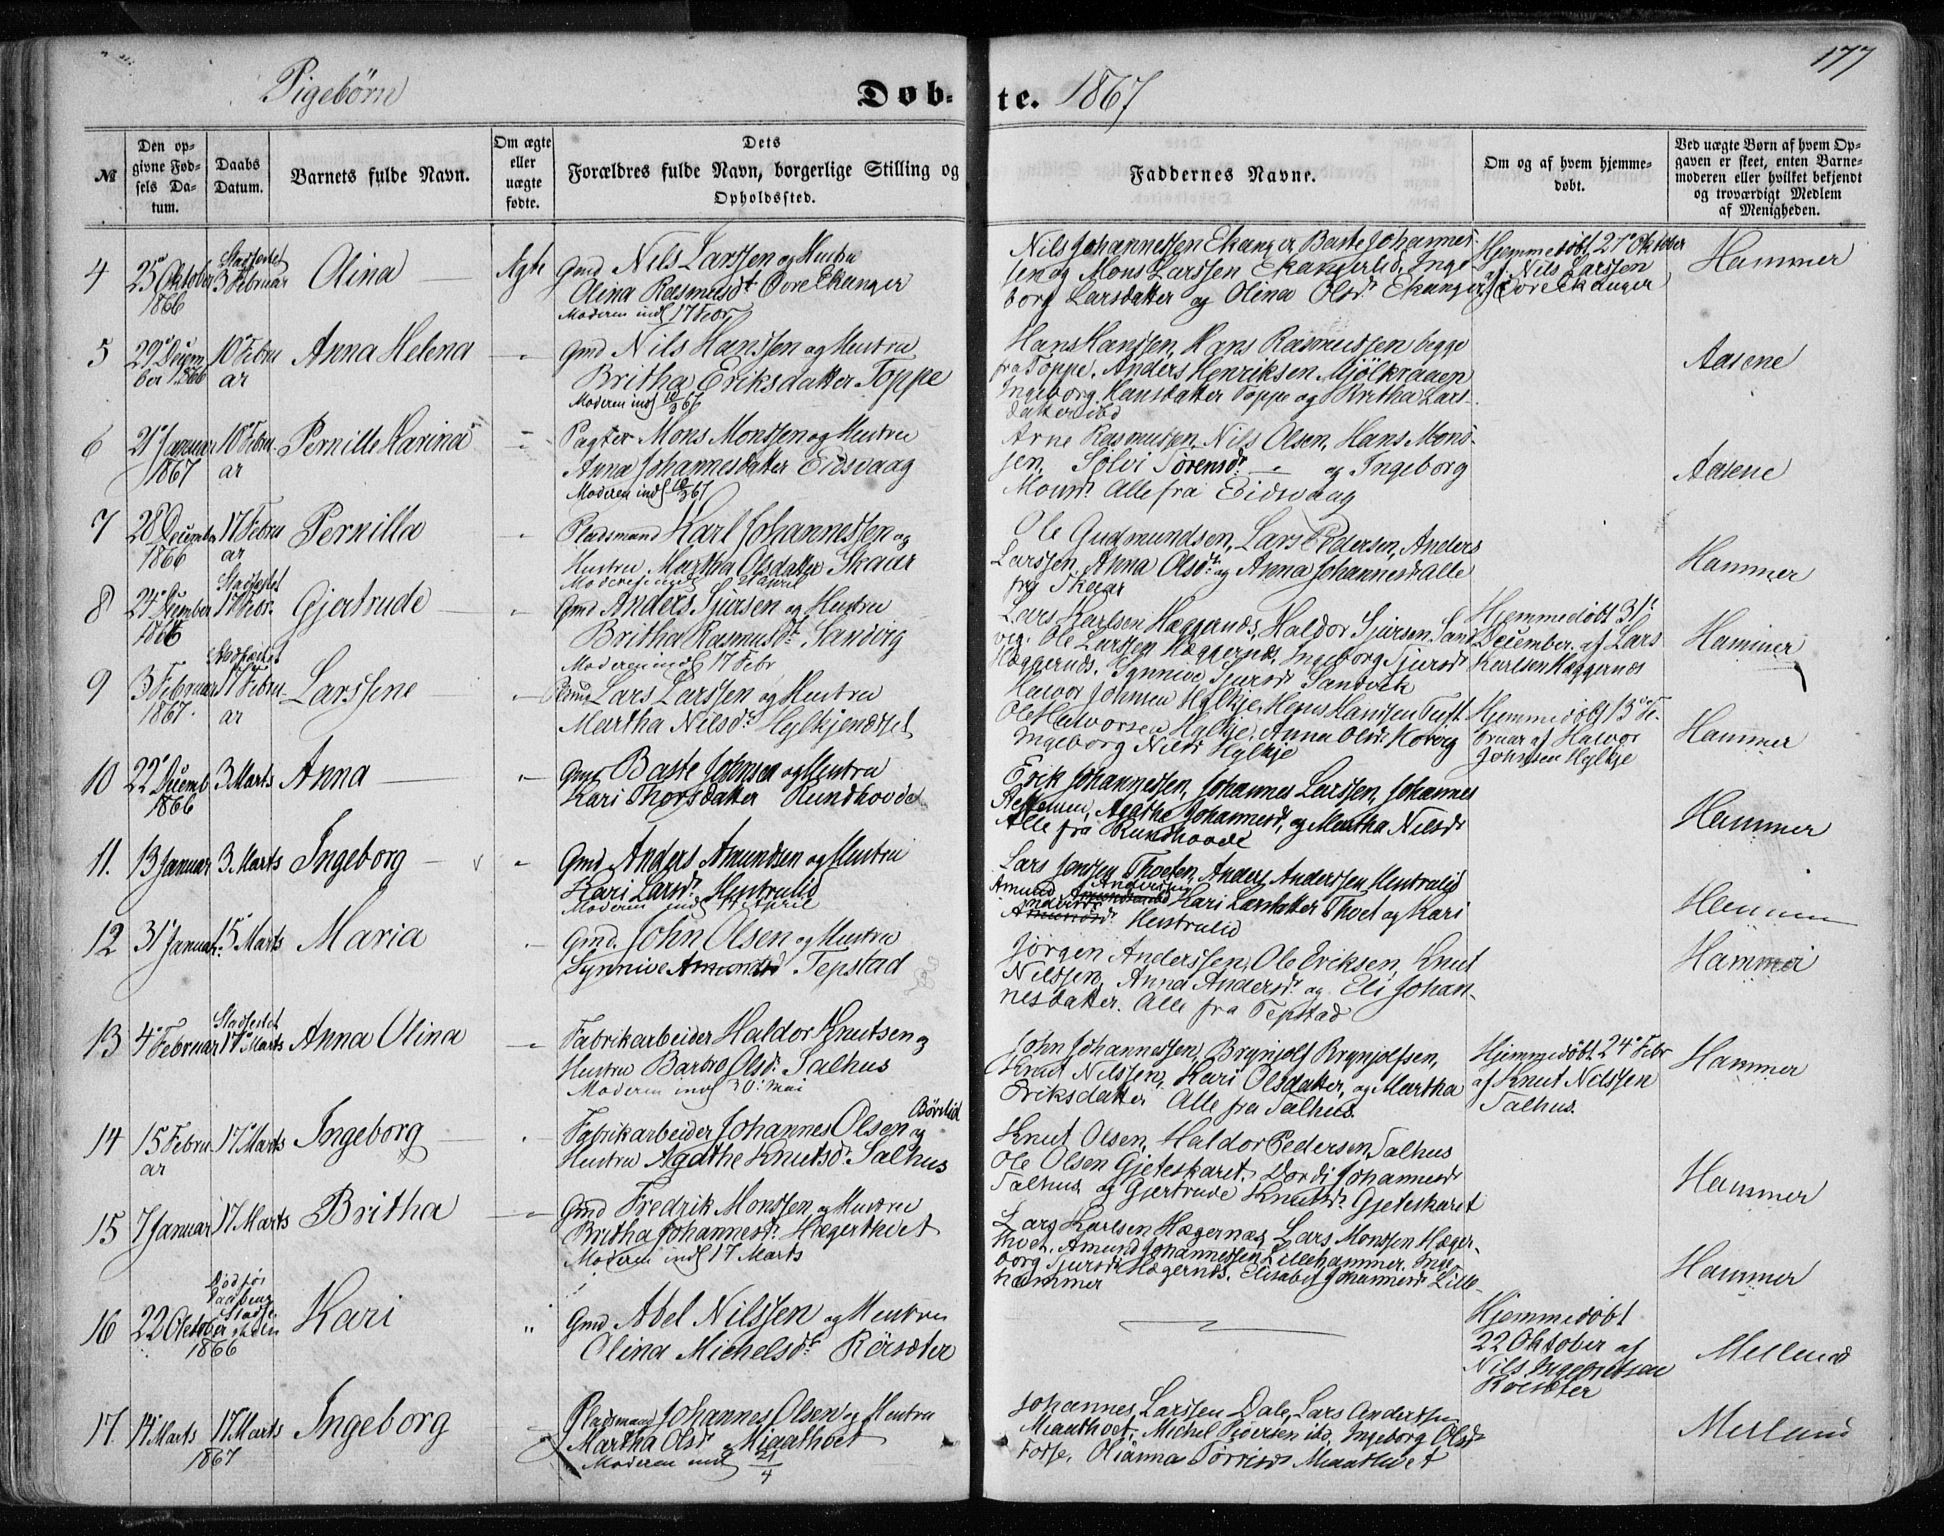 177
Pigebørn
Døb-te. 1867
№
Den opgivne Fødsels Datum.
Daabs Datum.
Barnets fulde Navn.
Om ægte eller uægte fødte.
Dets
Forældres fulde Navn, borgerlige Stilling og
Opholdssted.
Faddernes Navne.
Om og af hvem hjemmedøbt.
Ved uægte Børn af hvem Opgaven er skeet, enten Barnemoderen eller hvilket bekjendt og troværdigt Medlem af Menigheden.
4 25 Oktober 1866 Stadfestet 3 Februar Olina Ægte
Gmd Nils Larssen og Hustru
Olina Rasmusdr Øvre Ekanger
Moderen indl 17 Febr
Nils Johannessen Ekanger, Baste Johannes-
sen og Mons Larssen Ekangerlid, Inge
borg Larsdatter og Olina Olsdr Ekanger
Hjemmedøbt 27 Oktober
af Nils Larssen
Øvre Ekanger
Hammer
5 29 Decem ber 1866 10 Febru ar Anna Helena
Gmd Nils Hanssen og Hustru
Britha Eriksdatter Toppe
Moderen indl 10/3 67
Hans Hanssen, Hans Rasmussen begge
fra Toppe, Anders Henriksen Mjölkraaen
Ingeborg Hansdatter Toppe og Britha Lars-
datter ibd
Aasene
6 21 Januar 1867 10 Febru ar Pernille Karina
Pagter Mons Monssen og Hustru
Anna Johannesdatter Eidsvaag
Moderen indl 10/3 67
Arne Rasmussen, Nils Olsen, Hans Mons-
sen, Sølvi Sörensdr og Ingeborg
Monsdr Alle fra Eidsvaag
Aasene
7 28 December 1866 17 Febru ar Pernilla
Pladsmand Karl Johannessen og
Hustru Martha Olsdatter Skaar
Moderen indl 21 April
Ole Gudmundsen, Lars Pedersen, Anders
Larssen, Anna Olsdr og Anna Johannesdr alle
fra Skaar
Hammer
8 December 1866 Stadfestet 17 Febr. Gjertrude
Gmd Anders Sjursen og Hustru
Britha Rasmusdr Sandvig
Moderen indl 17 Febr
Lars Karlsen Hæggernæs, Haldor Sjursen Sand
vig, Ole Larssen Hæggernæs, Ingeborg Sjursdr
Hæggernæs, Synnive Sjursdr Sandvik
Hjemmedøbt 31
December af Lars
Karlsen Hæggernæs
Hammer
9 3 Februar 1867 Stadfæstet 17 Febru ar Larssine
Lars Larssen og Hustru
Martha Nilsdr Hylkjenæsset
Halvor Johnsen Hylkje, Hans Hanssen
Ole Halvorsen Hylkje, Anna Olsdr
Ingeborg Nilsdr Hylkje
Hjemmedøbt 13 Fe-
bruar af Halvor
Johnsen Hylkje
Hammer
10 22 Decemb 1866 3 Marts Anna
Gmd Baste Johnsen og Hustru
Kari Thorsdatter Rundhovde
Erik Johannessen, Johannes Larssen, Johannes
Steffensen, Agathe Johannesdr, og Martha Nilsdr
Alle fra Rundhovde
Hammer
11. 13 Januar 3 Marts Ingeborg
Gmd Anders Amundsen og Hustru
Kari Larsdr Hustrulid
Moderen indl 14 April
Lars Jenssen Thveten, Anders Anderssen Hustrulid
Amund Anderssen Kari Larsdatter Thvet og Kari
Andersdr Hustrulid
12 31 Januar 15 Marts Maria
Gmd. John Olsen og Hustru
Synnive Amundsdr Tepstad
Jörgen Anderssen, Ole Eriksen, Knut
Nilssen, Anna Andersdr og Eli Johan-
nesdatter. Alle fra Tepstad
Hammer
13 4 Februar Stadfestet 17 Marts Anna Olina
Fabrikarbeider Haldor Knutsen og
Hustru Barbro Olsdr Salhus
Moderen indl 30 Mai
John Johannessen, Brynjolf Brynjolfsen,
Knut Nilssen, Kari Olsdatter, og Martha
Eriksdatter Alle fra Salhus.
Hjemmedøbt 24 Febr
af Knut Nilssen
Salhus.
Hammer
14 15 Febru ar 17 Marts Ingeborg
Fabrikarbeider Johannes Olsen Börslid og
Hustru Agathe Knutsdr Salhus
Knut Olsen, Haldor Pedersen, Salhus
Ole Olsen Gjeteskaret, Dordi Johannesdr
Salhus og Gjertrude Knutsdr Gjeteskaret
Hammer
15 7 Januar 17 Marts Britha
Gmd Fredrik Monssen og Hustru
Britha Johannesdr Hægerthvet
Moderen indl 17 Marts
Lars Karlsen Hægernæs, Lars Monssen Hæger-
thvet, Amund Johannessen Lillehammer, Inge-
borg Sjursdr Hægernæs, Elisabet Johannesdr Lille-
hammer
Hammer
16 22 Oktober 1866 Död før Kari
Gmd Abel Nilssen og Hustru
Olina Michelsdr Rörsæter
Hjemmedøbt
22 Oktober af
Nils
Melland
17. 14 Marts 17 Marts 1867 Ingeborg
Pladsmand Johannes Olsen og Hustru
Martha Olsdr Miaathvet
Moderen indl 21/4
Johannes Larssen Dale, Lars Anderssen
Miaathvet, Michel ibd, Ingeborg Olsdr
Fosse, Miaathvet
Melland